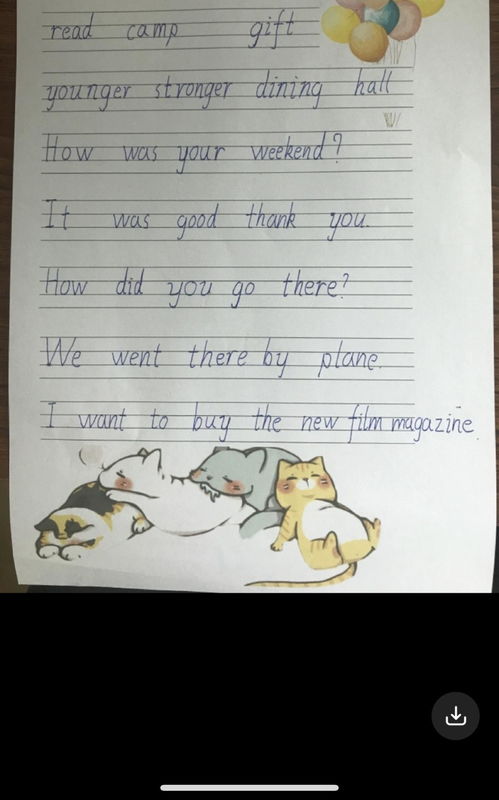 read camp gift
younger stronger dining hall
How was your weekend?
It was good thank you.
How did you go there?
We went there by plane.
I want to buy the new film magazine